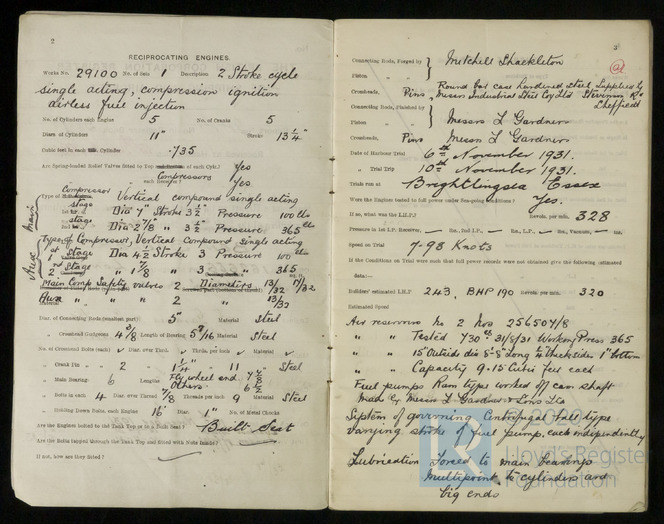 2
RECIPROCATING ENGINES.
Works No. 29100 No. of Sets 1 Description 2 Stroke cycle
single acting, compression ignition
airless fuel injection
No. of Cylinders each Engine 5 No. of Cranks 5
Diars. of Cylinders 11" Stroke 13 1/4"
Cubic feet in each Cylinder .735
Are Spring-loaded Relief Valves fitted to Top of each Cylr.? Yes
Compressors
each Yes
Compressor
Type of Vertical compound single acting
Main
1st stage Dia 7" Stroke 3 1/2" Pressure 100 lbs
2nd stage Dia 2 7/8" " 3 1/2" " 365 lbs
Aux
Type of Compressor, Vertical Compound single acting
1st Stage Dia 4 1/2 Stroke 3 Pressure 100 lbs
2nd stage " 1 7/8 " 3 " 365
Main Comp Safety valves 2 Diameters 13/32 17/32
Aux " " 2 " 13/32
Diar. of Connecting Rods (smallest part) 5" Material Steel
" Crosshead Gudgeons 4 3/8 Length of Bearing 5 9/16 Material Steel
No. of Crosshead Bolts (each) ✓ Diar. over Thrd. ✓ Thrds. per inch ✓ Material ✓
" Crank Pin " " 2 " 1 1/4" " 11 " Steel
" Main Bearings 6 Lengths Fly wheel end
Others
" Bolts in each 4 Diar. over Thread 7/8 Threads per inch 9 Material Steel
" Holding Down Bolts, each Engine 16 Diar. 1" No. of Metal Chocks
Are the Engines bolted to the Tank Top or to a Built Seat? Built Seat
Are the Bolts tapped through the Tank Top and fitted with Nuts Inside?
If not, how are they fitted?
3
Connecting Rods, Forged by Mitchell Shackleton
Piston " "
Crossheads, Pins Round bar case hardened steel, supplied by
Messrs Industrial Steel Coy Ltd Stevenson Rd
Sheffield
Connecting Rods, Finished by
Piston " " Messrs L Gardners
Crossheads, Pins Messrs L Gardners
Date of Harbour Trial 6th November 1931.
" Trial Trip 10th November 1931.
Trials run at Brightlingsea Essex
Were the Engines tested to full power under Sea-going Conditions? Yes.
If so, what was the I.H.P.? Revols. per min. 328
Pressure in 1st I.P. Receiver, lbs., 2nd I.P., lbs., L.P., lbs., Vacuum, ins.
Speed on Trial 7.98 Knots
If the Conditions on Trial were such that full power records were not obtained give the following estimated
data:—
Builders' estimated I.H.P. 243, BHP 190 Revols. per min. 320
Estimated Speed
Air reservoirs No 2 Nos 256507/8
" " Tested 730 lbs 31/8/31 Working Press 365
" " 15" Outside dia 8-8" long 1/4" thick sides 1" bottom
" " Capacity 9.15 Cubic feet each
Fuel pumps Ram type worked off cam shaft
Made by Messrs L Gardner & Sons Ltd
System of governing Centrifugal full type
Varying stroke of fuel pump, each independently
Lubrication Forced to main bearings
Multipoint to cylinders and
big ends
© 2020
Lloyd's Register
Foundation
LR